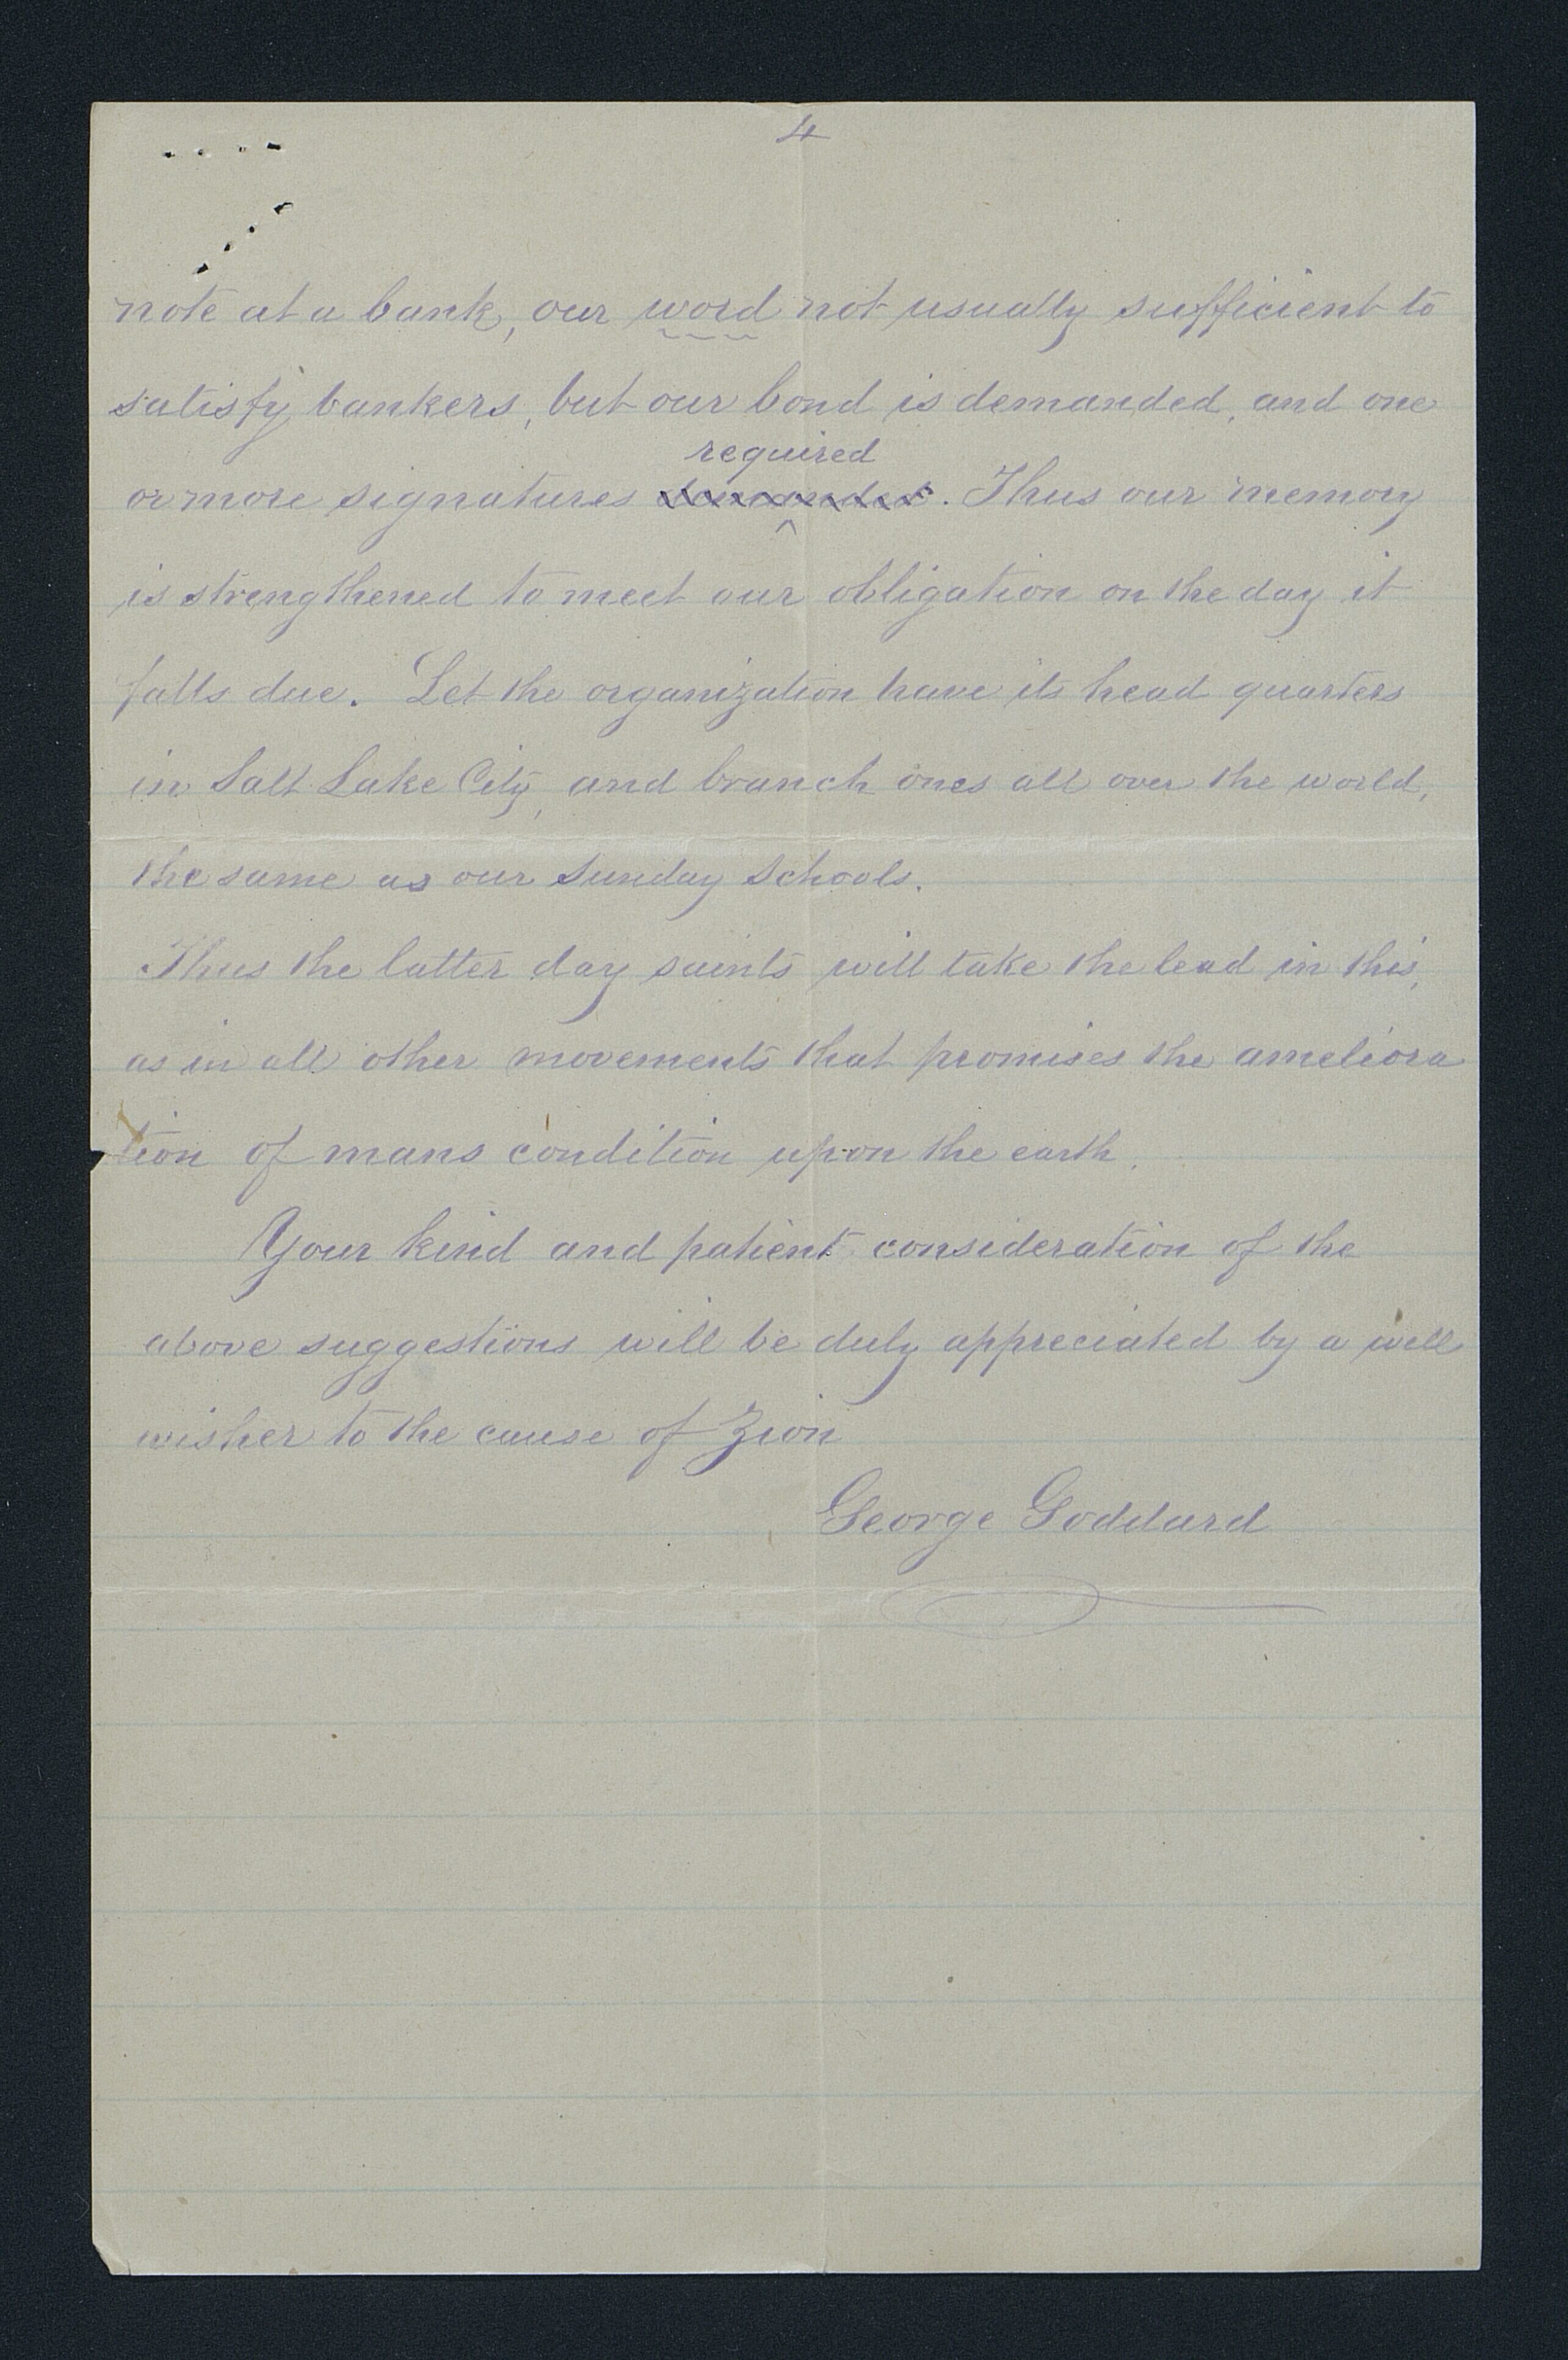 4
note at a bank, our word not usually sufficient to
satisfy bankers, but our bond is demanded, and one
required
or more signatures demanded. Thus our memory
is strengthened to meet our obligation on the day it
falls due. Let the organization have its head quarters
in Salt Lake City, and branch ones all over the world,
the same as our Sunday Schools.
Thus the latter day saints will take the lead in this,
as in all other movements that promises the ameliora
tion of mans condition upon the earth.
Your kind and patient consideration of the
above suggestions will be duly appreciated by a well
wisher to the cause of Zion
George Goddard